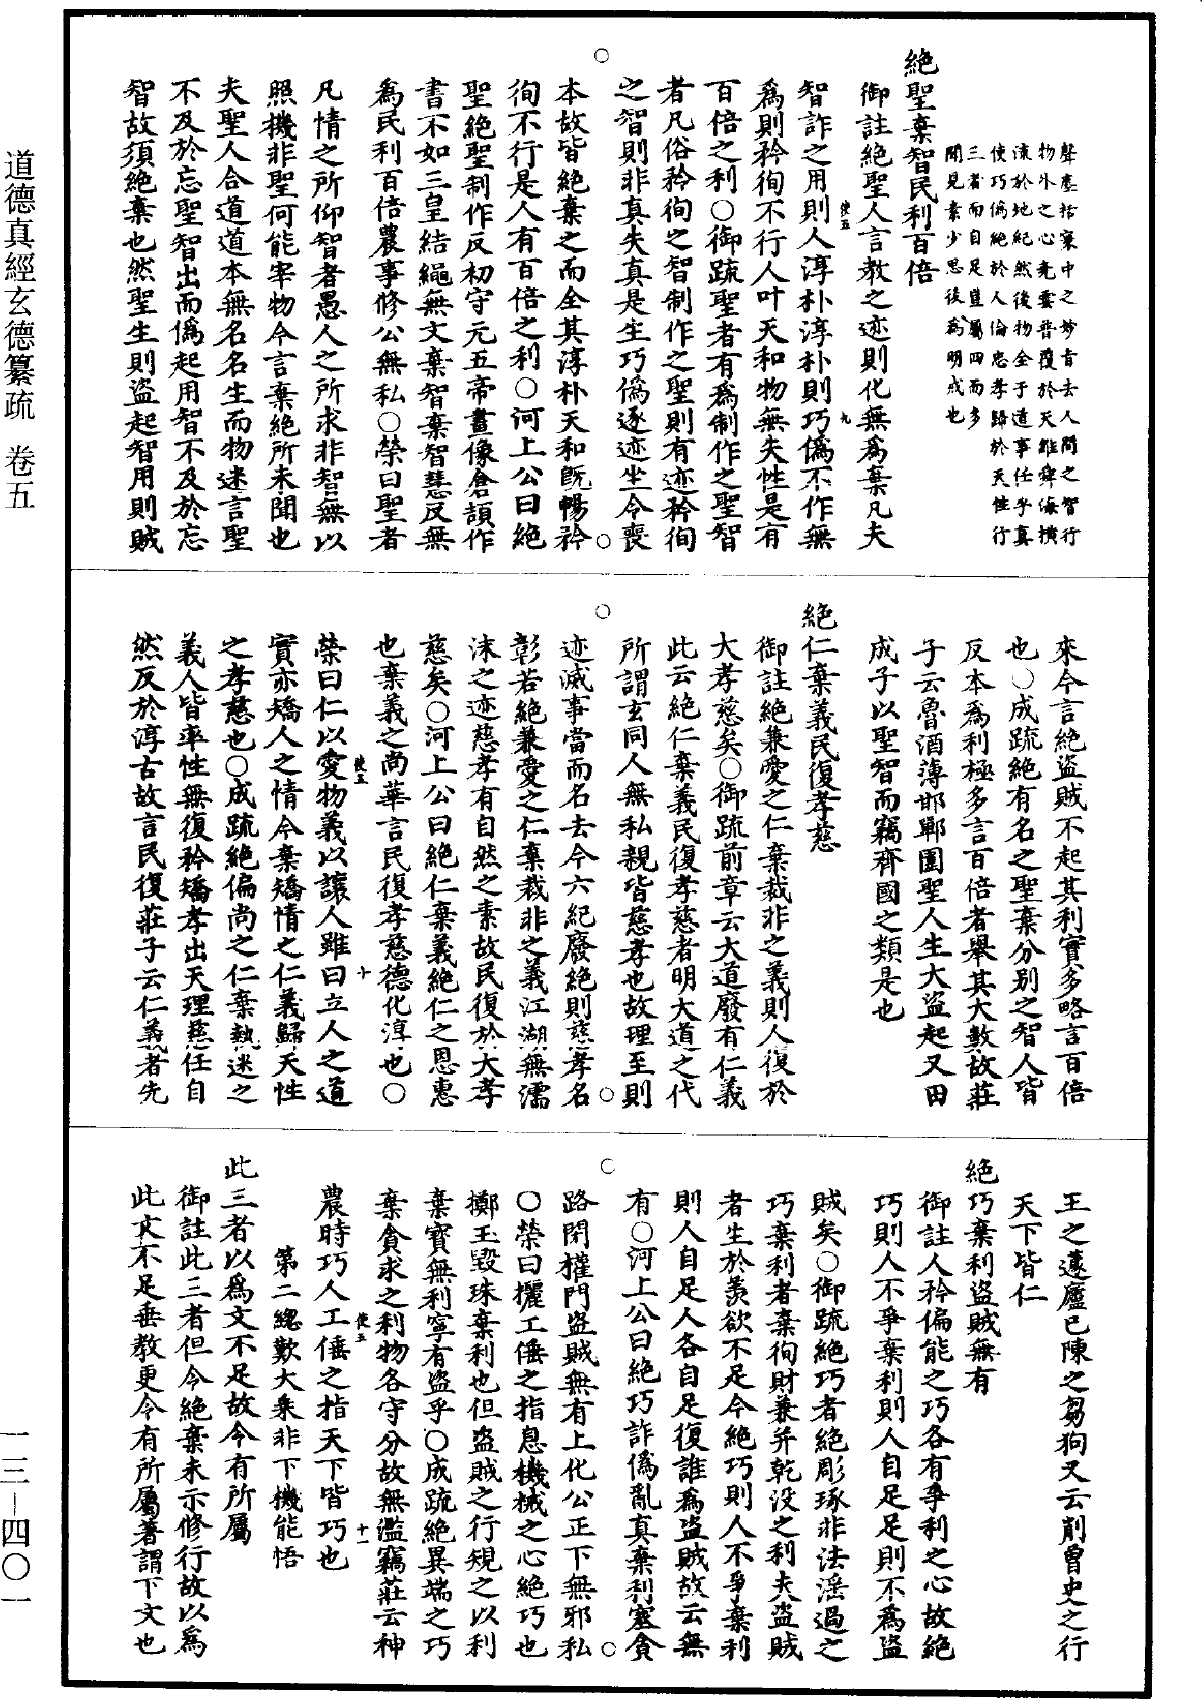 聲塵括囊中之妙旨去人間之智行
物外之心堯雲普覆於天雖舜海橫
流於地紀然後物全于道事任乎真
使巧偽絕於人倫忠孝歸於天性行
三者而自足豈屬四而多
聞見素少思後為明戒也
絕聖棄智民利百倍
御註絕聖人言教之迹則化無為棄凡夫
使五
九
智詐之用則人淳朴淳朴則巧偽不作無
為則矜徇不行人叶天和物無失性是有
百倍之利○御疏聖者有為制作之聖智
者凡俗矜徇之智制作之聖則有迹矜徇
之智則非真失真是生巧偽逐迹坐令喪
本故皆絕棄之而全其淳朴天和既暢矜
徇不行是人有百倍之利○河上公曰絕
聖絕聖制作反初守元五帝畫像倉頡作
書不如三皇結繩無文棄智棄智慧反無
為民利百倍農事修公無私○榮曰聖者
凡情之所仰智者愚人之所求非智無以
照機非聖何能宰物今言棄絕所未聞也
夫聖人合道道本無名名生而物迷言聖
不及於忘聖智出而偽起用智不及於忘
智故須絕棄也然聖生則盜起智用則賊
來今言絕盜賊不起其利實多略言百倍
也○成疏絕有名之聖棄分別之智人皆
反本為利極多言百倍者舉其大數故莊
子云魯酒薄邯鄲圍聖人生大盜起又田
成子以聖智而竊齊國之類是也
絕仁棄義民復孝慈
御註絕兼愛之仁棄裁非之義則人復於
大孝慈矣○御疏前章云大道廢有仁義
此云絕仁棄義民復孝慈者明大道之代
所謂玄同人無私親皆慈孝也故理至則
迹滅事當而名去今六紀廢絕則慈孝名
彰若絕兼愛之仁棄裁非之義江湖無濡
沫之迹慈孝有自然之素故民復於大孝
慈矣○河上公曰絕仁棄義絕仁之恩惠
也棄義之尚華言民復孝慈德化淳也○
使五
十
榮曰仁以愛物義以讓人雖曰立人之道
實亦矯人之情今棄矯情之仁義歸天性
之孝慈也○成疏絕偏尚之仁棄執迷之
義人皆率性無復矜矯孝出天理慈任自
然反於淳古故言民復莊子云仁義者先
王之蘧廬已陳之芻狗又云削曾史之行
天下皆仁
絕巧棄利盜賊無有
御註人矜偏能之巧各有爭利之心故絕
巧則人不爭棄利則人自足足則不為盜
賊矣○御疏絕巧者絕彫琢非法淫過之
巧棄利者棄徇財兼并乾沒之利夫盜賊
者生於羨欲不足今絕巧則人不爭棄利
則人自足人各自足復誰為盜賊故云無
有○河上公曰絕巧詐偽亂真棄利塞貪
路閉權門盜賊無有上化公正下無邪私
○榮曰攦工倕之指息機械之心絕巧也
擲玉毀珠棄利也但盜賊之行規之以利
棄寶無利寧有盜乎○成疏絕異端之巧
棄貪求之利物各守分故無濫竊莊云神
使五
十一
農時巧人工倕之指天下皆巧也
第二總歎大乘非下機能悟
此三者以為文不足故令有所屬
御註此三者但令絕棄未示修行故以為
此文不足垂教更令有所屬著謂下文也
道德真經玄德纂疏 卷五
一三—四〇一